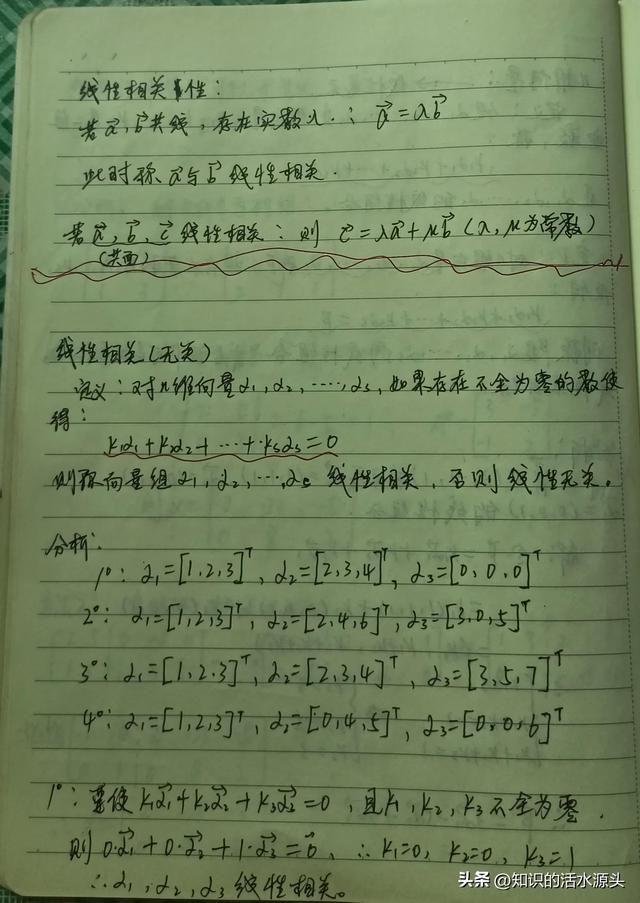 线性相关性:
若a⃗,b⃗共线,存在实数λ.: a⃗=λb⃗
此时称a⃗与b⃗线性相关.
若a⃗,b⃗,c⃗线性相关:则 c⃗=λa⃗+μb⃗(λ,μ为常数)
(共面)
线性相关(无关)
定义:对n维向量α1,α2,……,αs,如果存在不全为零的数使
得:
k1α1+k2α2+…+ksαs=0
则称向量组α1,α2,…,αs 线性相关,否则线性无关。
分析:
1°: α1=[1,2,3]ᵀ, α2=[2,3,4]ᵀ, α3=[0,0,0]ᵀ
2°: α1=[1,2,3]ᵀ, α2=[2,4,6]ᵀ, α3=[3,0,5]ᵀ
3°: α1=[1,2.3]ᵀ, α2=[2,3,4]ᵀ, α3=[3,5,7]ᵀ
4°: α1=[1,2,3]ᵀ, α2=[0,4,5]ᵀ, α3=[0,0,6]ᵀ
1°: 要使k1α⃗1+k2α⃗2+k3α⃗3=0,且k1,k2,k3不全为零.
则 0·α⃗1+0·α⃗2+1·α⃗3=0⃗, ∴k1=0, k2=0, k3=1
∴α1,α2,α3线性相关。
头条 @知识的活水源头